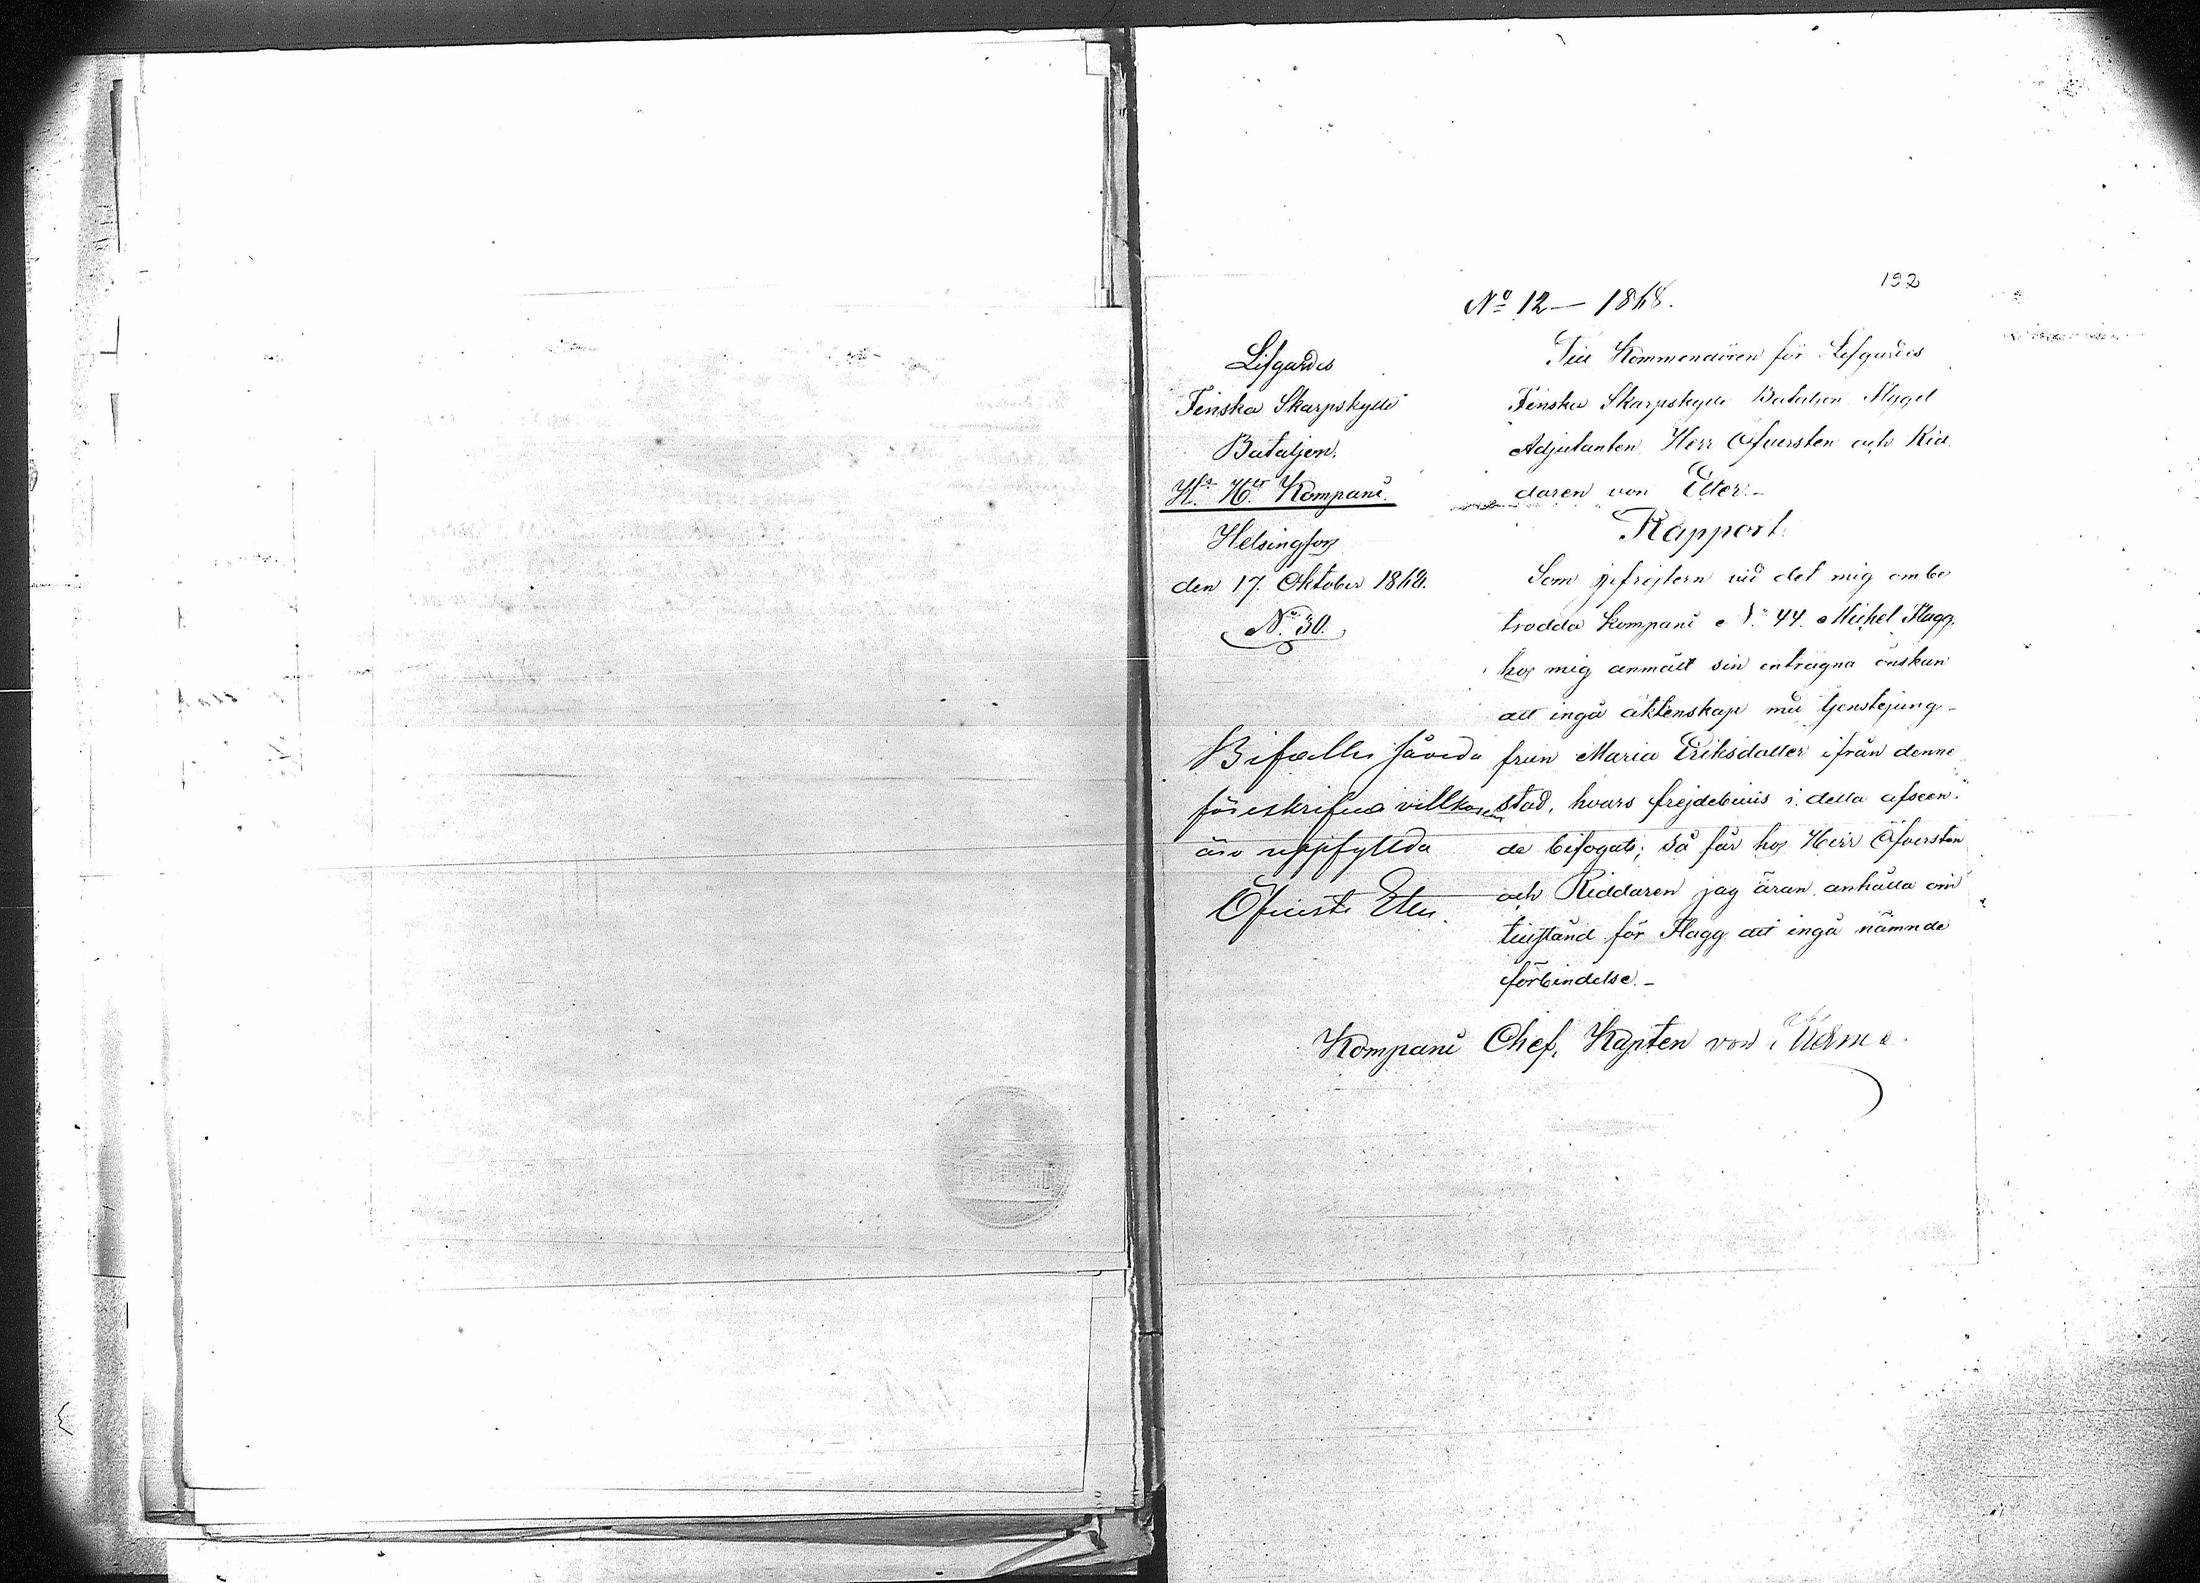 192
No 12 — 1868.
Lifgardes
Finska Skarpskytte
Bataljon.
Hs. Hts. Kompani.
Helsingfors
den 17. Oktober 1868.
No. 30.
Till Kommendören för Lifgardes
Finska Skarpskytte Bataljon Flygel
Adjutanten Herr Öfversten och Rid
daren von Etter.-
Rapport.
Som gefrejtern vid det mig ombe
trodda kompani No. 44. Michel Flagg.
hos mig anmält sin enträgna önskan
att ingå äktenskap med tjenstejung-
frun Maria Eriksdotter ifrån denne
stad, hvars frejdebevis i detta afseen-
de bifogats; så får hos Herr Öfversten
och Riddaren jag äran anhålla om
tillstånd för Flagg att ingå nämnde
förbindelse.-
Kompani Chef, Kapten von
Bifalles såvida
föreskrifna villkoren
äro uppfyllda
Öfverste Etter.